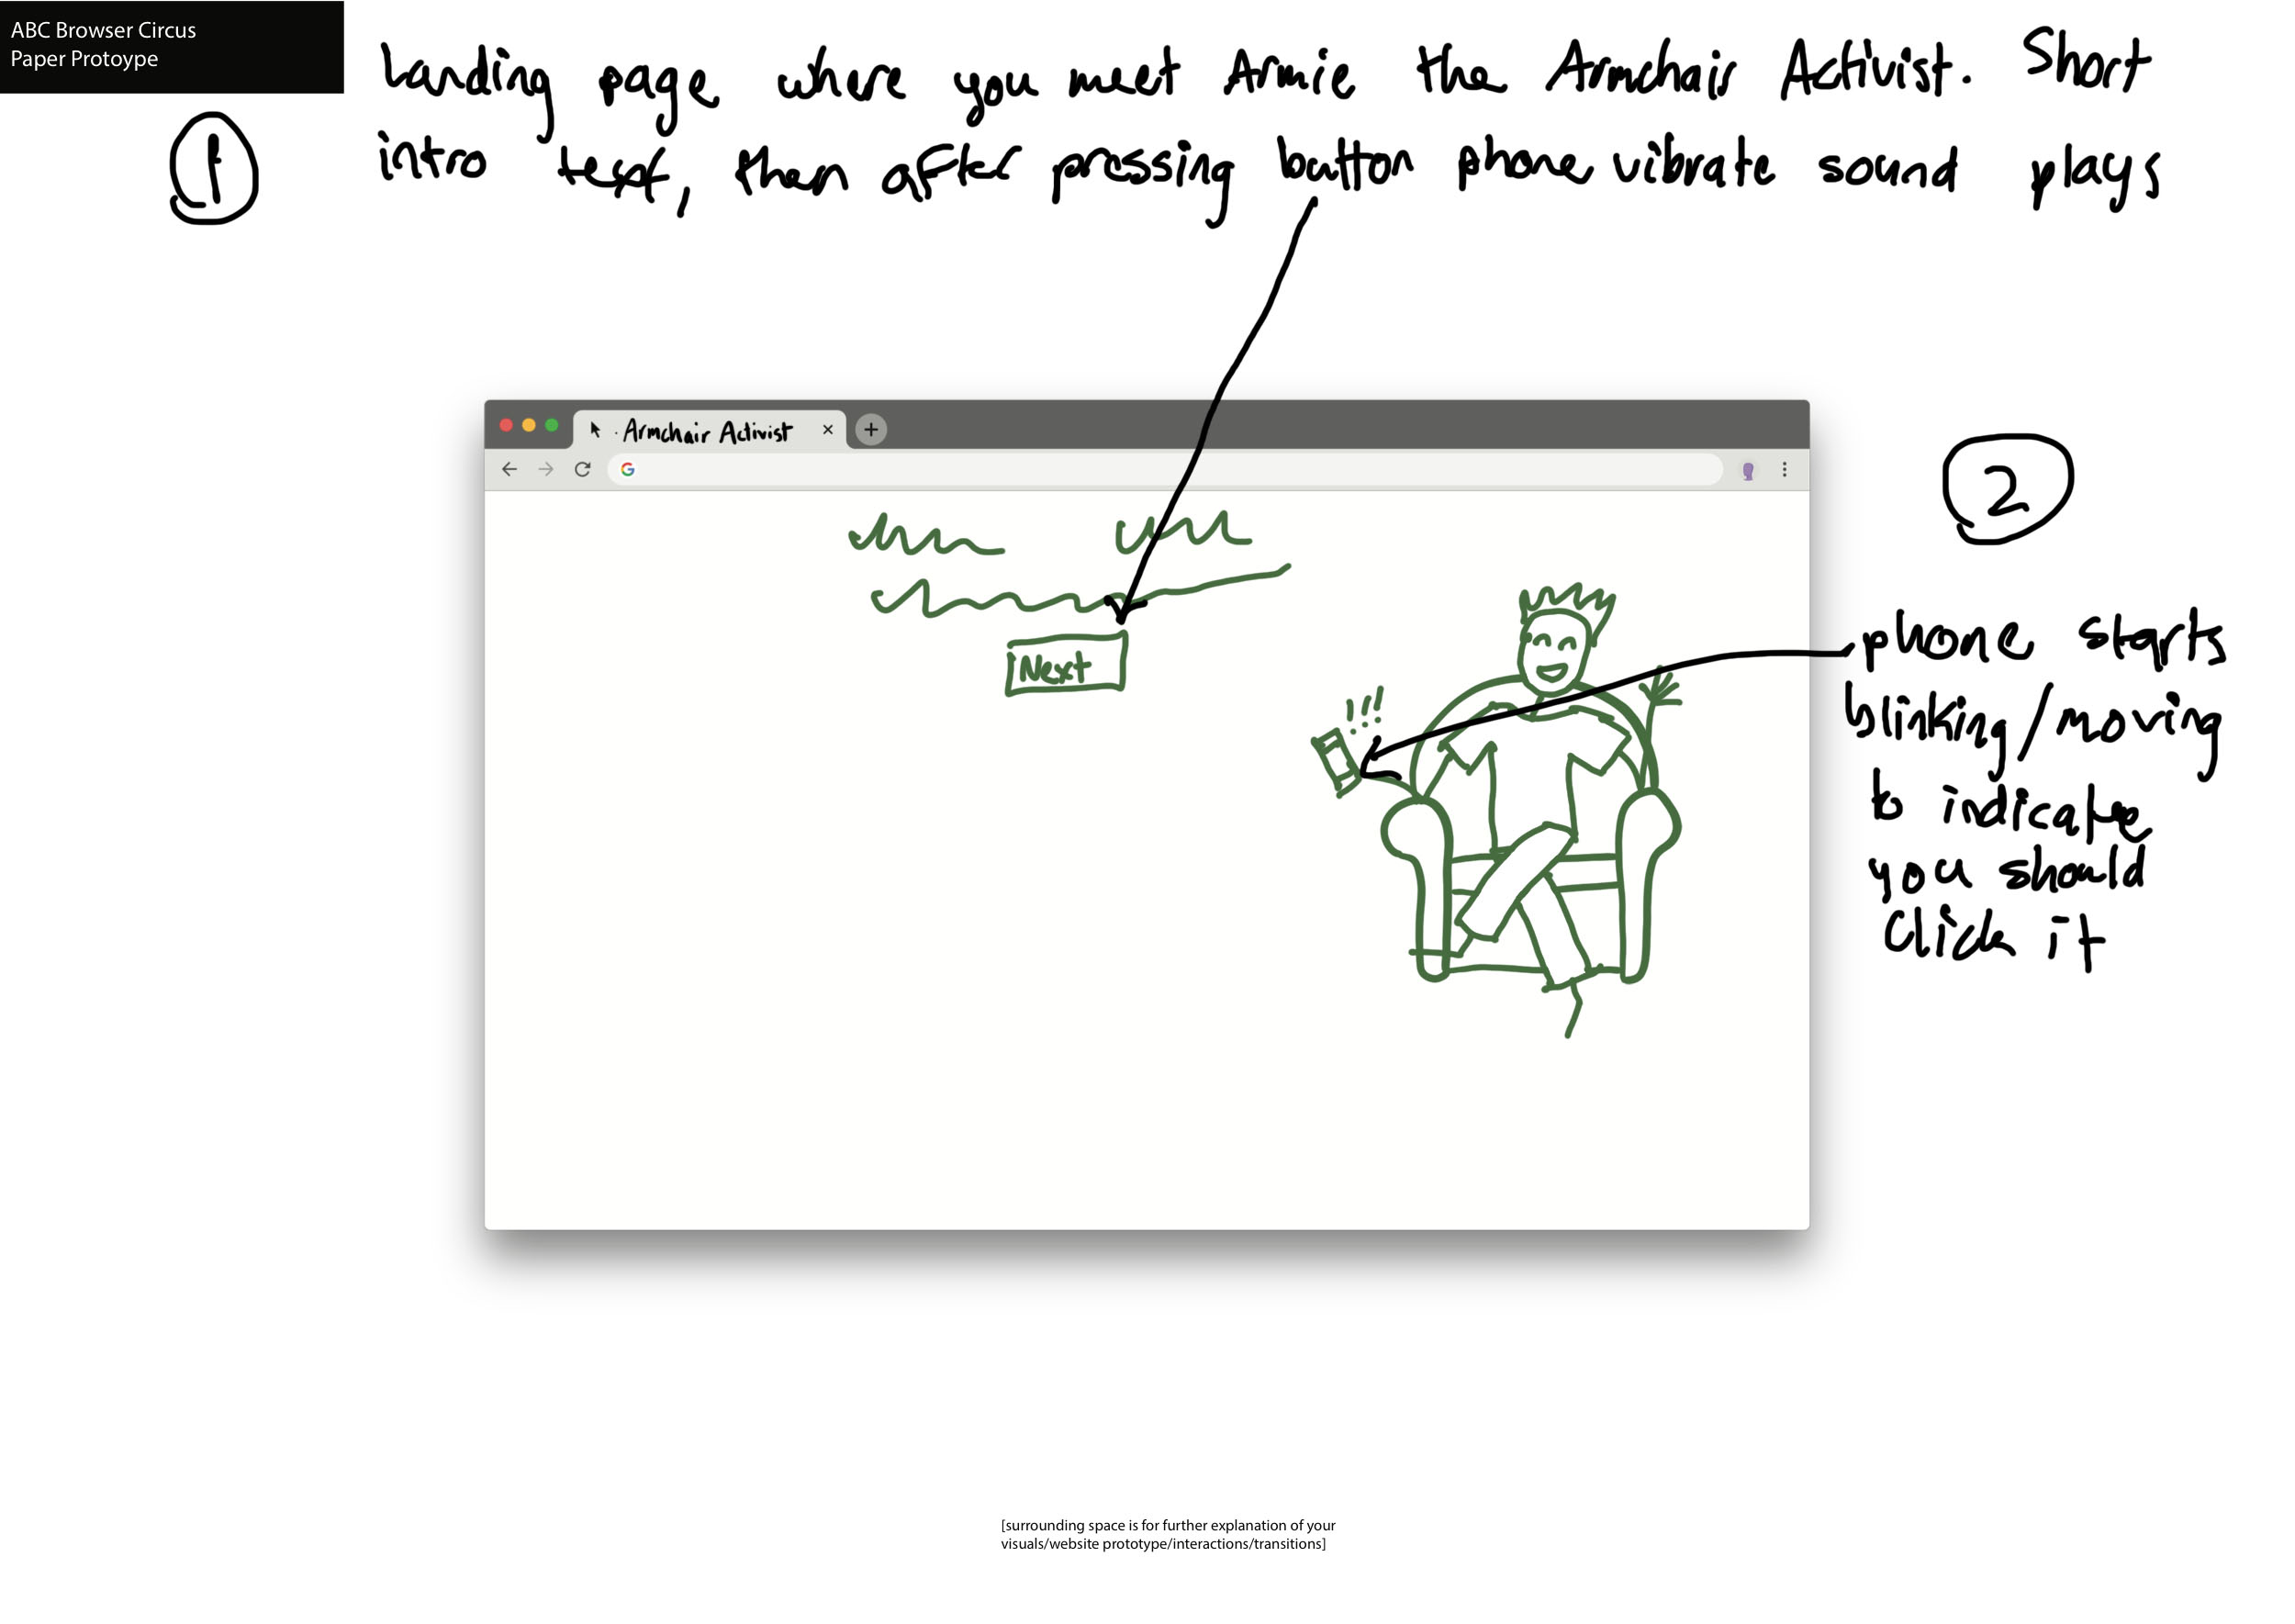 ABC Browser Circus
Paper Protoype
1
Landing page where you meet Armie the Armchair Activist. Short
intro text, then after pressing button phone vibrate sound plays
Armchair Activist
Next
!!!
2
phone starts
blinking/moving
to indicate
you should
Click it
[surrounding space is for further explanation of your
visuals/website prototype/interactions/transitions]